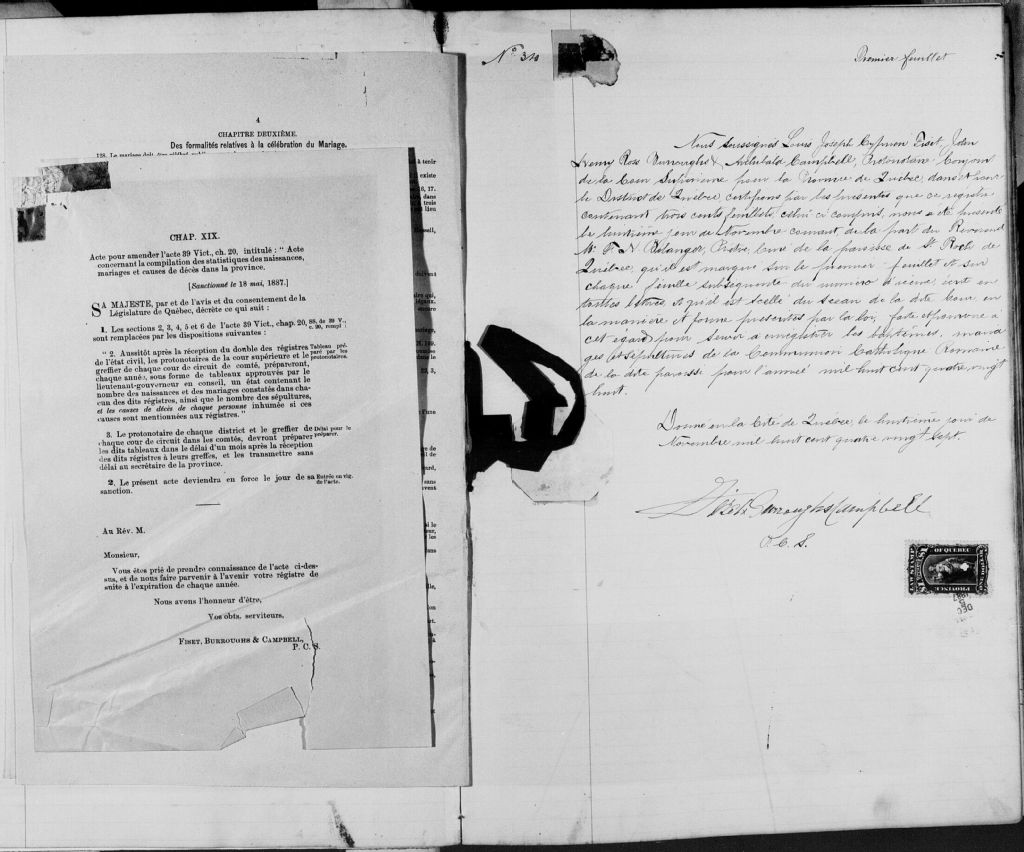 4
CHAPITRE DEUXIÈME.
Des formalités relatives à la célébration du Mariage.
CHAP. XIX.
Acte pour amender l'acte 39 Vict., ch. 20, intitulé : " Acte
concernant la compilation des statistiques des naissances,
mariages et causes de décès dans la province.
[Sanctionné le 18 mai, 1887.]
SA MAJESTE, par et de l'avis et du consentement de la
Législature de Québec, décrète ce qui suit :
1. Les sections 2, 3, 4, 5 et 6 de l'acte 39 Vict., chap. 20, SS. de 39 V., c. 20, rempl :
sont remplacées par les dispositions suivantes :
" 2. Aussitôt après la réception du double des régistres Tableau pré-
de l'état civil, les protonotaires de la cour supérieure et le paré par les
greffier de chaque cour de circuit de comté, prépareront, protonotaires.
chaque année, sous forme de tableaux approuvés par le
lieutenant-gouverneur en conseil, un état contenant le
nombre des naissances et des mariages constatés dans cha-
cun des dits régistres, ainsi que le nombre des sépultures,
et les causes de décès de chaque personne inhumée si ces
causes sont mentionnées aux régistres."
3. Le protonotaire de chaque district et le greffier de Délai pour le
chaque cour de circuit dans les comtés, devront préparer préparer.
les dits tableaux dans le délai d'un mois après la réception
des dits régistres à leurs greffes, et les transmettre sans
délai au secrétaire de la province.
2. Le présent acte deviendra en force le jour de sa Entrée en vig.
sanction. de l'acte.
Au Rév. M.
Monsieur,
Vous êtes prié de prendre connaissance de l'acte ci-des-
sus, et de nous faire parvenir à l'avenir votre régistre de
suite à l'expiration de chaque année.
Nous avons l'honneur d'être,
Vos obts. serviteurs,
FISET, BURROUGHS & CAMPBELL,
P. C. S.
No
Premier feuillet
Nous soussignés Louis Joseph Cyprien Fiset, John
Henry Ross Burroughs & Archibald Campbell, Protonotaire Conjoint
de la Cour Supérieure pour la Province de Québec, dans et pour
le District de Québec, certifions par les présentes que ce registre
contenant trois cents feuillets, celui ci compris, nous a été présenté
le huitième jour de Novembre courant, de la part du Révérend
M. F. N. Bélanger, Prêtre, Curé de la paroisse de St Roch de
Québec, qu'il est marqué sur le premier feuillet et sur
chaque feuille subséquente du numéro écrit en
toutes lettres, et qu'il est scellé du sceau de la dite Cour en
la manière et forme prescrites par la loi, faite et pourvue à
cet égard, pour servir à enregistrer les baptêmes, maria
ges et sépultures de la Communion Catholique Romaine
de la dite paroisse pour l'année mil huit cent quatre vingt
huit.
Donné en la Cité de Québec, le huitième jour de
Novembre mil huit cent quatre vingt sept.
Fiset Burroughs Campbell
P. C. S.
OF QUEBEC
PROVINCE